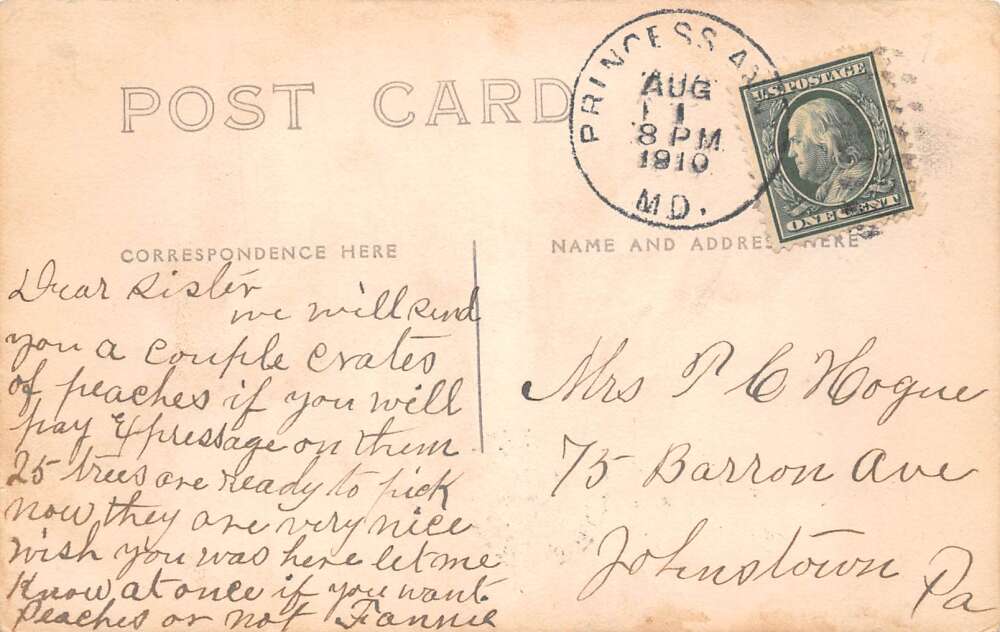 POST CARD
PRINCESS A
AUG
11
8 PM
1910
MD.
U.S. POSTAGE
ONE CENT
CORRESPONDENCE HERE
NAME AND ADDRESS HERE
Dear Sister
we will send
you a couple crates
of peaches if you will
pay Expressage on them
25 trees are ready to pick
now they are very nice
wish you was here let me
know at once if you want
peaches or not Fannie
Mrs P C Hogue
75 Barron Ave
Johnstown
Pa